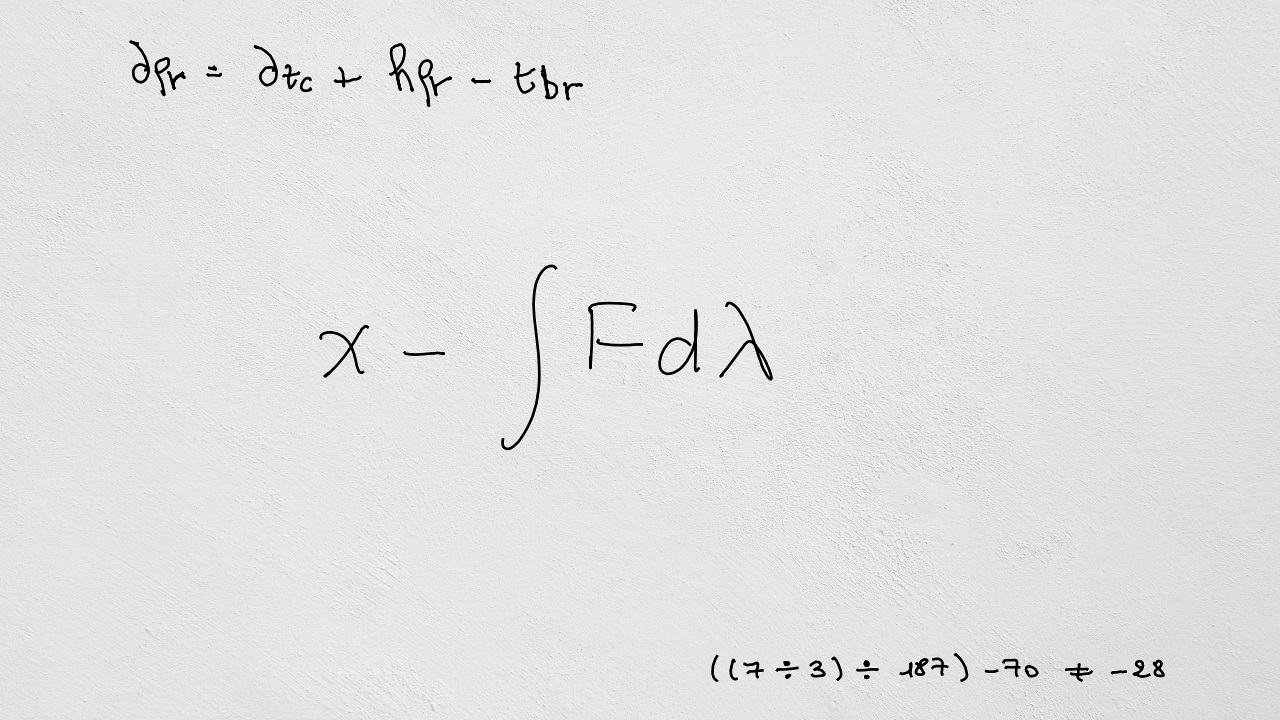 ∂ρr = ∂tc + hρr - tbr
x - ∫ F d λ
((7 ÷ 3) ÷ 187) - 70 ≠ -28